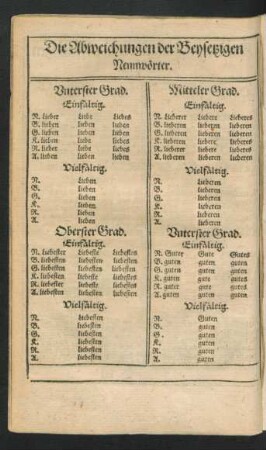 Die Abweichungen der Beysetzigen
Nennwörter.
Vnterster Grad.
Einfältig.
N. lieber liebe liebes
G. lieben lieben lieben
A. lieben lieben lieben
Vielfältig.
N. lieben
B. lieben
G. lieben
K. lieben
R. lieben
A. lieben
Oberster Grad.
Einfältig.
N. liebester liebeste liebesten
B. liebesten liebesten liebesten
G. liebesten liebesten liebesten
K. liebesten liebesten liebesten
R. liebester liebeste liebesten
A. liebesten liebesten liebesten
Vielfältig.
N. liebesten
B. liebesten
G. liebesten
K. liebesten
R. liebesten
A. liebesten
Mitteler Grad.
Einfältig.
N. lieberer liebere lieberes
B. lieberen lieberen lieberen
G. lieberen lieberen lieberen
A. lieberen lieberen lieberen
Vielfältig.
N. lieberen
B. lieberen
G. lieberen
K. lieberen
R. lieberen
A. lieberen
Vnterster Grad.
Einfältig.
N. Guter Gute Gutes
B. guten guten guten
G. guten guten guten
K. guten guten guten
R. guter gute guten
A. guten guten guten
Vielfältig.
N. Guten
B. guten
G. guten
K. guten
R. guten
A. guten